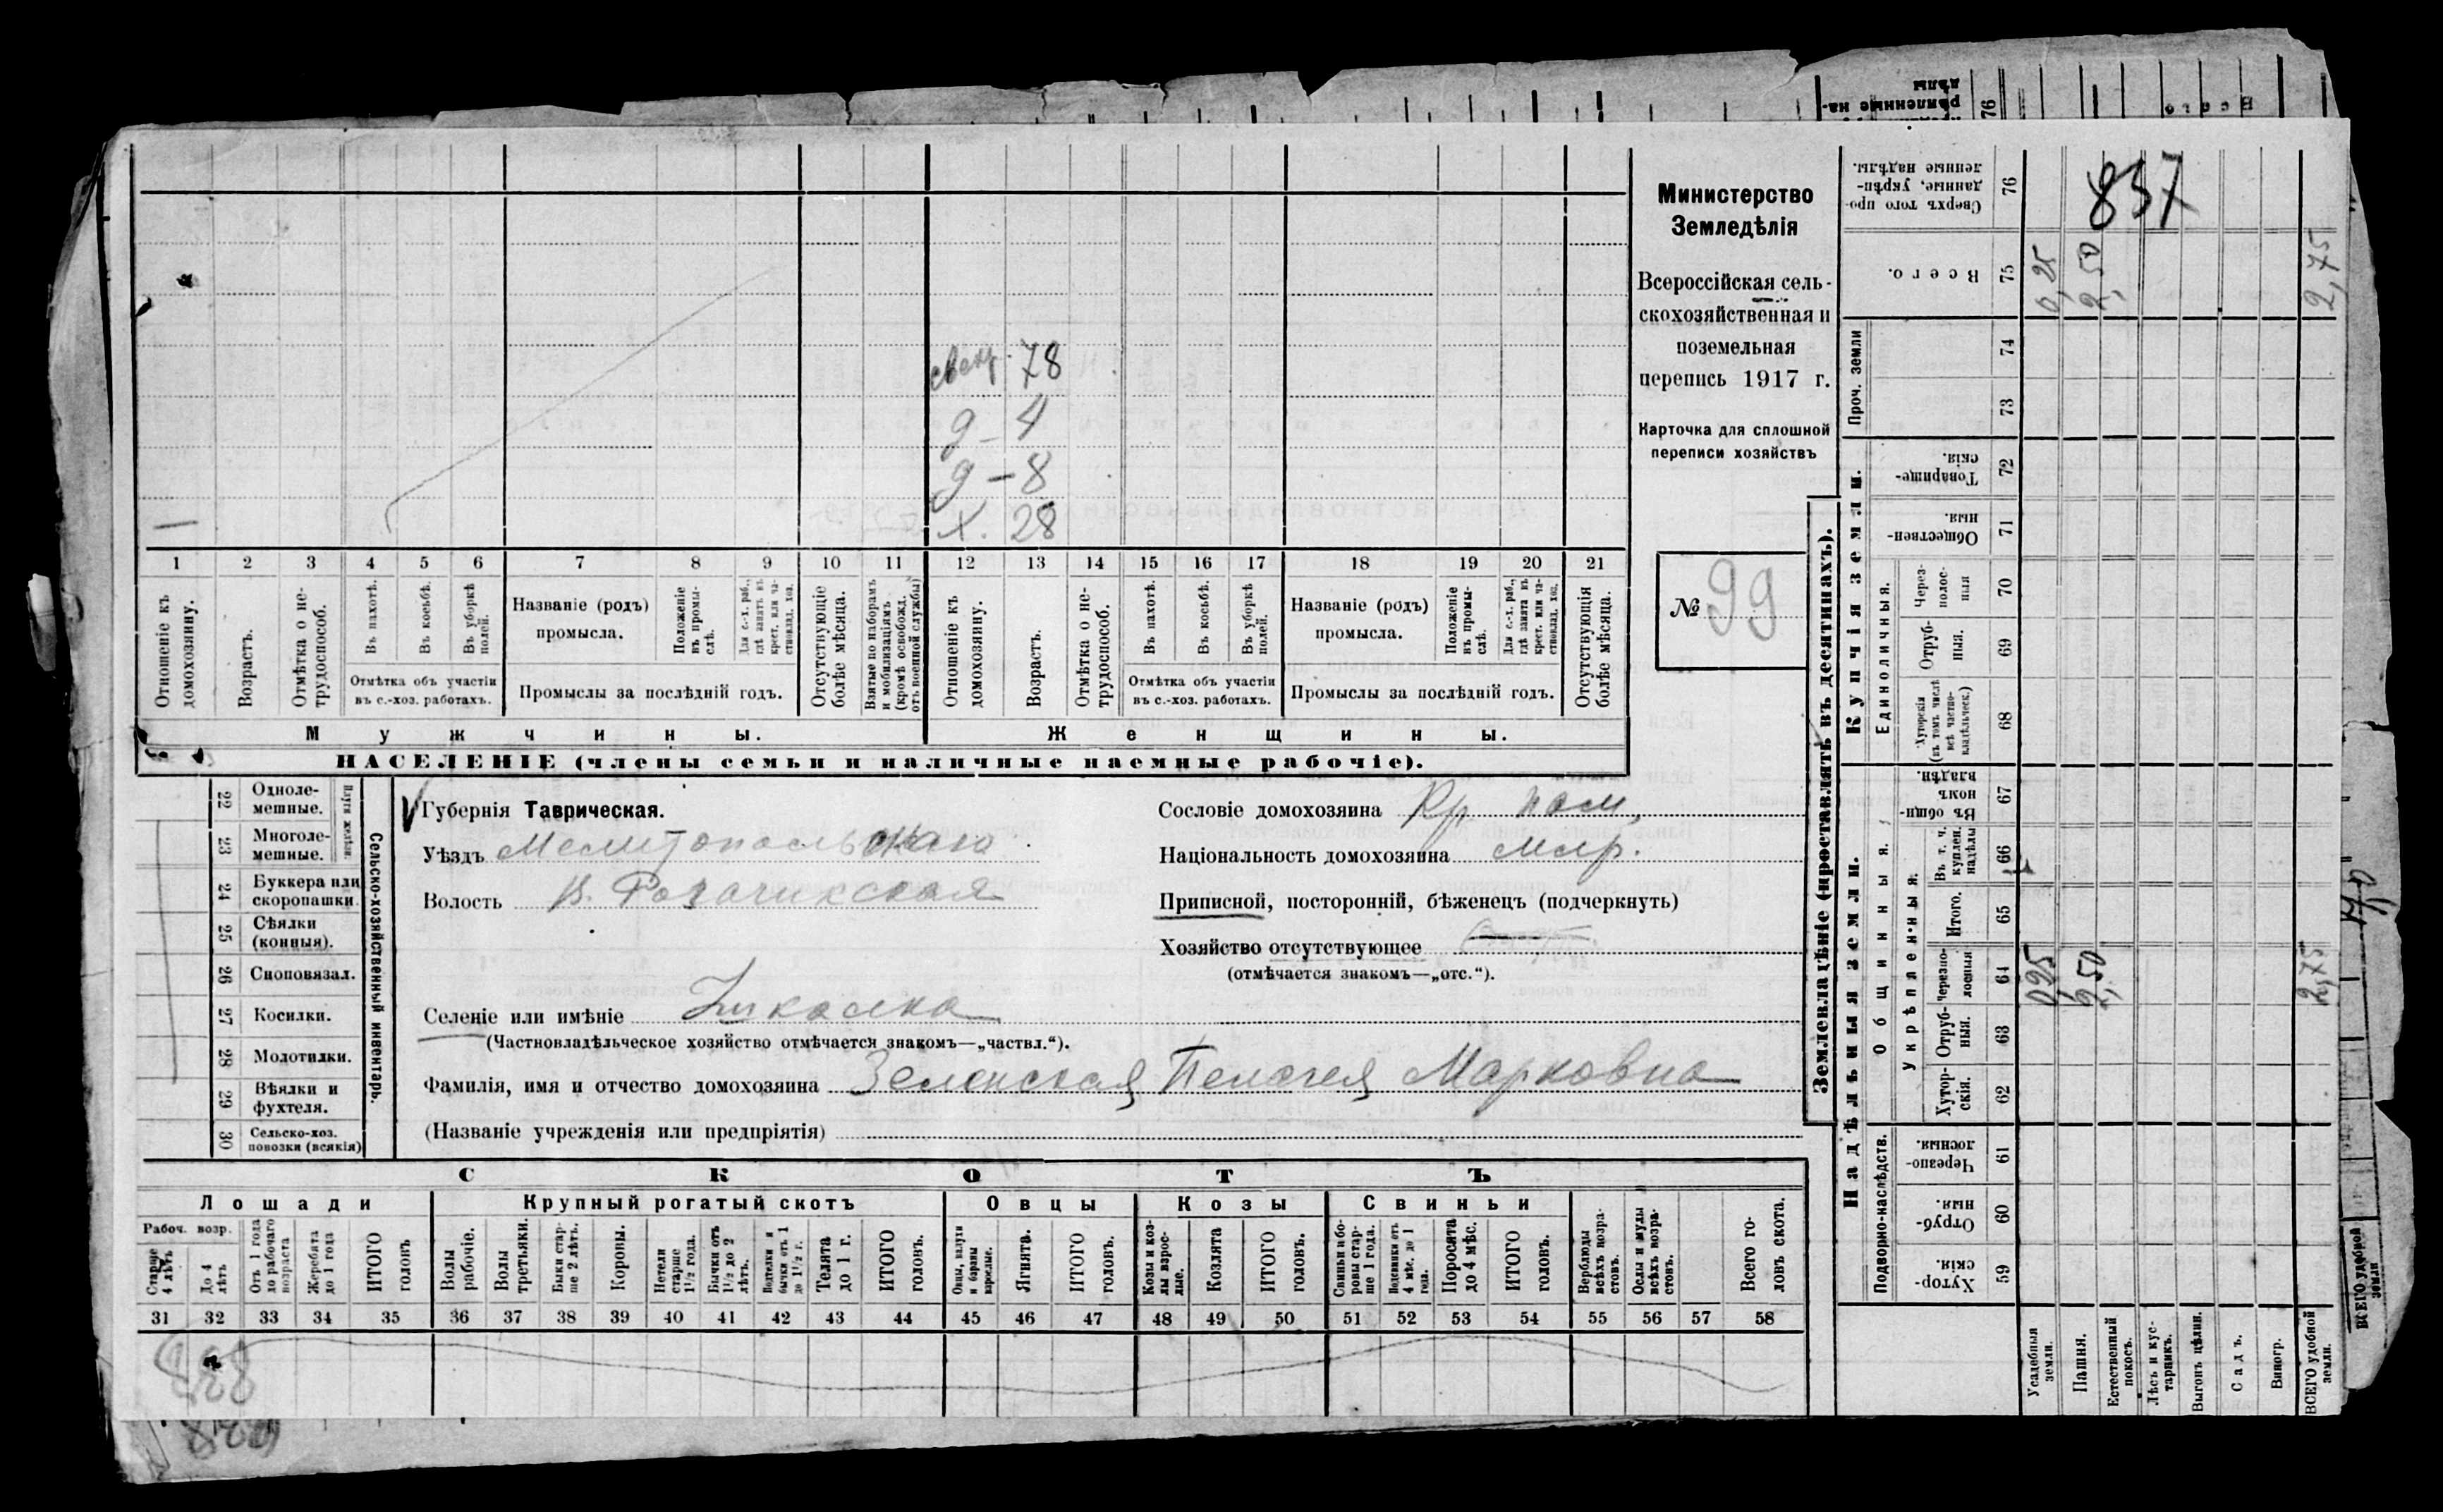 свекр. 78
д - 4
д - 8
Х. 28
1 2 3 4 5 6 7 8 9 10 11 12 13 14 15 16 17 18 19 20 21
Отношеніе къ домохозяину.
Возрастъ.
Отмѣтка о не-
трудоспособ.
Въ пахотѣ.
Въ косьбѣ.
Въ уборкѣ полей.
Отмѣтка объ участіи
въ с.-хоз. работахъ.
Названіе (родъ)
промысла.
Положеніе въ промы-
слѣ.
Для с.-х. раб., гдѣ занятъ въ крест. или ча-
стновлад. хоз.
Промыслы за послѣдній годъ.
Отсутствующіе болѣе мѣсяца.
Взятые по наборамъ и мобилизаціямъ (кромѣ освобожд. отъ военной службы)
Отношеніе къ домохозяину.
Возрастъ.
Отмѣтка о не-
трудоспособ.
Въ пахотѣ.
Въ косьбѣ.
Въ уборкѣ полей.
Отмѣтка объ участіи
въ с.-хоз. работахъ.
Названіе (родъ)
промысла.
Положеніе въ промы-
слѣ.
Для с.-х. раб., гдѣ занята въ крест. или ча-
стновлад. хоз.
Промыслы за послѣдній годъ.
Отсутствующія болѣе мѣсяца.
Мужчины.
Женщины.
НАСЕЛЕНІЕ (члены семьи и наличные наемные рабочіе).
Министерство
Земледѣлія
Всероссійская сель-
скохозяйственная и
поземельная
перепись 1917 г.
Карточка для сплошной
переписи хозяйствъ
№ 99
22 Одноле-
мешные.
23 Многоле-
мешные.
Плуги желѣзн.
24 Буккера или
скоропашки.
25 Сѣялки
(конныя).
26 Сноповязал.
27 Косилки.
28 Молотилки.
29 Вѣялки и
фухтеля.
30 Сельско-хоз.
повозки (всякія)
Сельско-хозяйственный инвентарь.
Губернія Таврическая.
Уѣздъ Мелитопольскаго
Волость В. Рогачикская
Сословіе домохозяина Кр.
Національность домохозяина млр.
Приписной, посторонній, бѣженецъ (подчеркнуть)
Хозяйство отсутствующее
(отмѣчается знакомъ—„отс.“).
Селеніе или имѣніе
(Частновладѣльческое хозяйство отмѣчается знакомъ—„частвл.“).
Фамилія, имя и отчество домохозяина Зеленская Пелагея Марковна
(Названіе учрежденія или предпріятія)
СКОТЪ
Лошади
Крупный рогатый скотъ
Овцы
Козы
Свиньи
Рабоч. возр.
Старше 4 лѣтъ
До 4 лѣтъ
Отъ 1 года до рабочаго возраста
Жеребята до 1 года
ИТОГО головъ
Волы рабочіе.
Волы третьяки.
Быки стар-
ше 2 лѣтъ.
Коровы.
Нетели старше 1½ года.
Бычки отъ 1½ до 2 лѣтъ.
Подтелки и бычки отъ 1 до 1½ г.
Телята до 1 г.
ИТОГО головъ.
Овцы, валухи и бараны взрослые.
Ягнята.
ИТОГО головъ.
Козы и коз-
лы взрос-
лые.
Козлята
ИТОГО головъ.
Свиньи и бо-
ровы стар-
ше 1 года.
Подсвинки отъ 4 мѣс. до 1 года.
Поросята до 4 мѣс.
ИТОГО головъ.
Верблюды всѣхъ возра-
стовъ.
Ослы и мулы всѣхъ возра-
стовъ.
Всего го-
ловъ скота.
31 32 33 34 35 36 37 38 39 40 41 42 43 44 45 46 47 48 49 50 51 52 53 54 55 56 57 58
838
Землевладѣніе (проставлять въ десятинахъ).
Надѣльныя земли.
Купчія земли.
Проч. земли
Сверхъ того про-
данные, укрѣп-
ленные надѣлы.
76
837
Всего.
75
0,25
2,50
2,75
74
73
Товарище-
скія.
72
Обществен-
ныя.
71
Единоличныя.
Через-
полос-
ныя
70
Отруб-
ныя.
69
Хуторскія (въ томъ числѣ всѣ частно-
владѣльческ.)
68
Общинныя.
Въ общи-
номъ владѣн.
67
Укрѣпленныя.
Въ т. ч. куплен. надѣлы
66
Итого.
65
Черезпо-
лосныя
64
0,25
2,50
2,75
Отруб-
ныя.
63
Хутор-
скія.
62
Подворно-наслѣдств.
Черезпо-
лосныя.
61
Отруб-
ныя.
60
Хутор-
скія.
59
Усадебныя земли.
Пашня.
Естественный покосъ.
Лѣсъ и кус-
тарникъ.
Выгонъ цѣлин.
Садъ.
Виногр.
ВСЕГО удобной земли.
ВСЕГО удобной земли